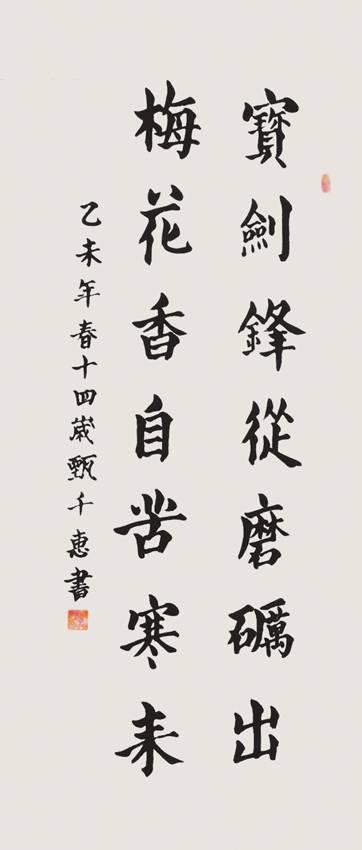 寶劍鋒從磨礪出
梅花香自苦寒来
乙未年春十四歲甄千惠書